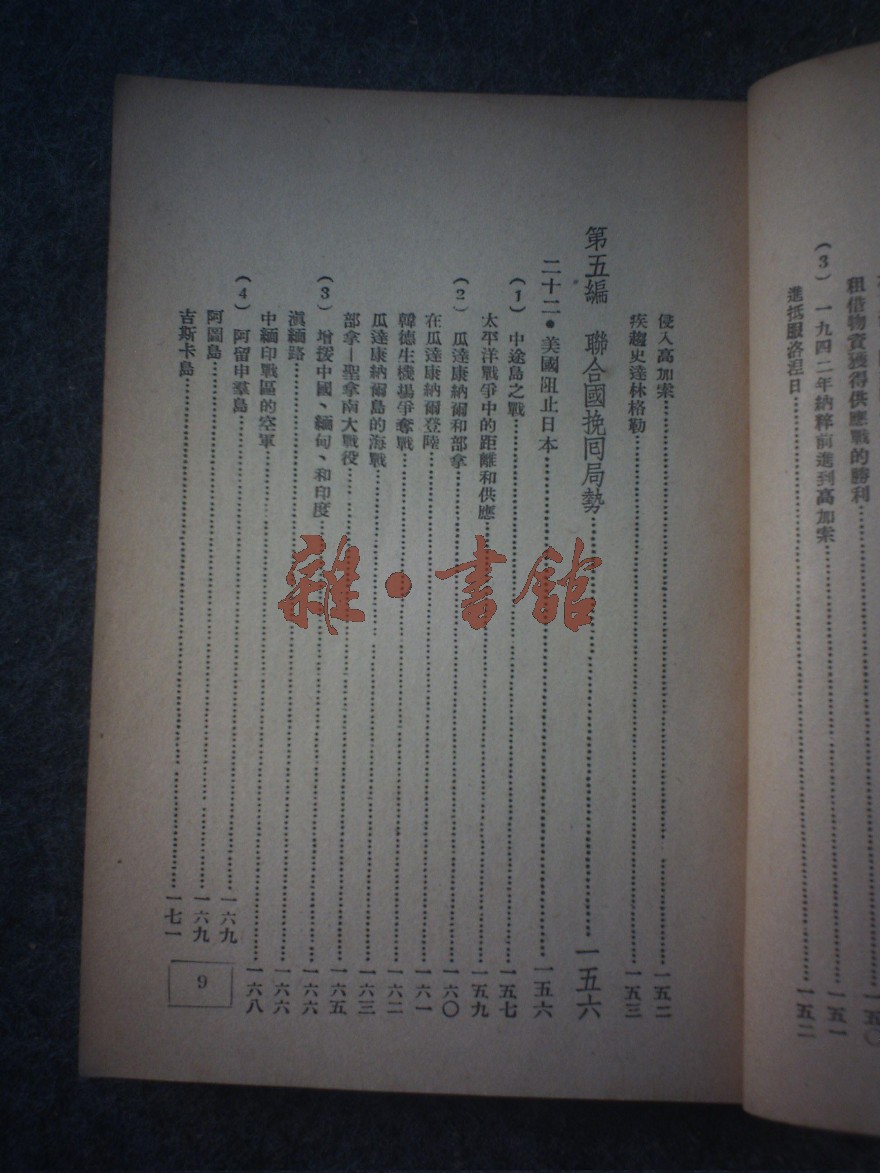 租借物資獲得供應戰的勝利 一五〇
(3) 一九四二年納粹前進到高加索 一五一
進抵服洛涅日 一五二
侵入高加索 一五二
疾趨史達林格勒 一五三
第五編 聯合國挽回局勢 一五六
二十二•美國阻止日本 一五六
(1) 中途島之戰 一五七
太平洋戰爭中的距離和供應 一五九
(2) 瓜達康納爾和部拿 一六〇
在瓜達康納爾登陸 一六一
韓德生機場爭奪戰 一六二
瓜達康納爾島的海戰 一六三
部拿—聖拿南大戰役 一六五
(3) 增援中國、緬甸、和印度 一六六
滇緬路 一六六
中緬印戰區的空軍 一六八
(4) 阿留申羣島 一六九
阿圖島 一六九
吉斯卡島 一七一
9
雜•書館